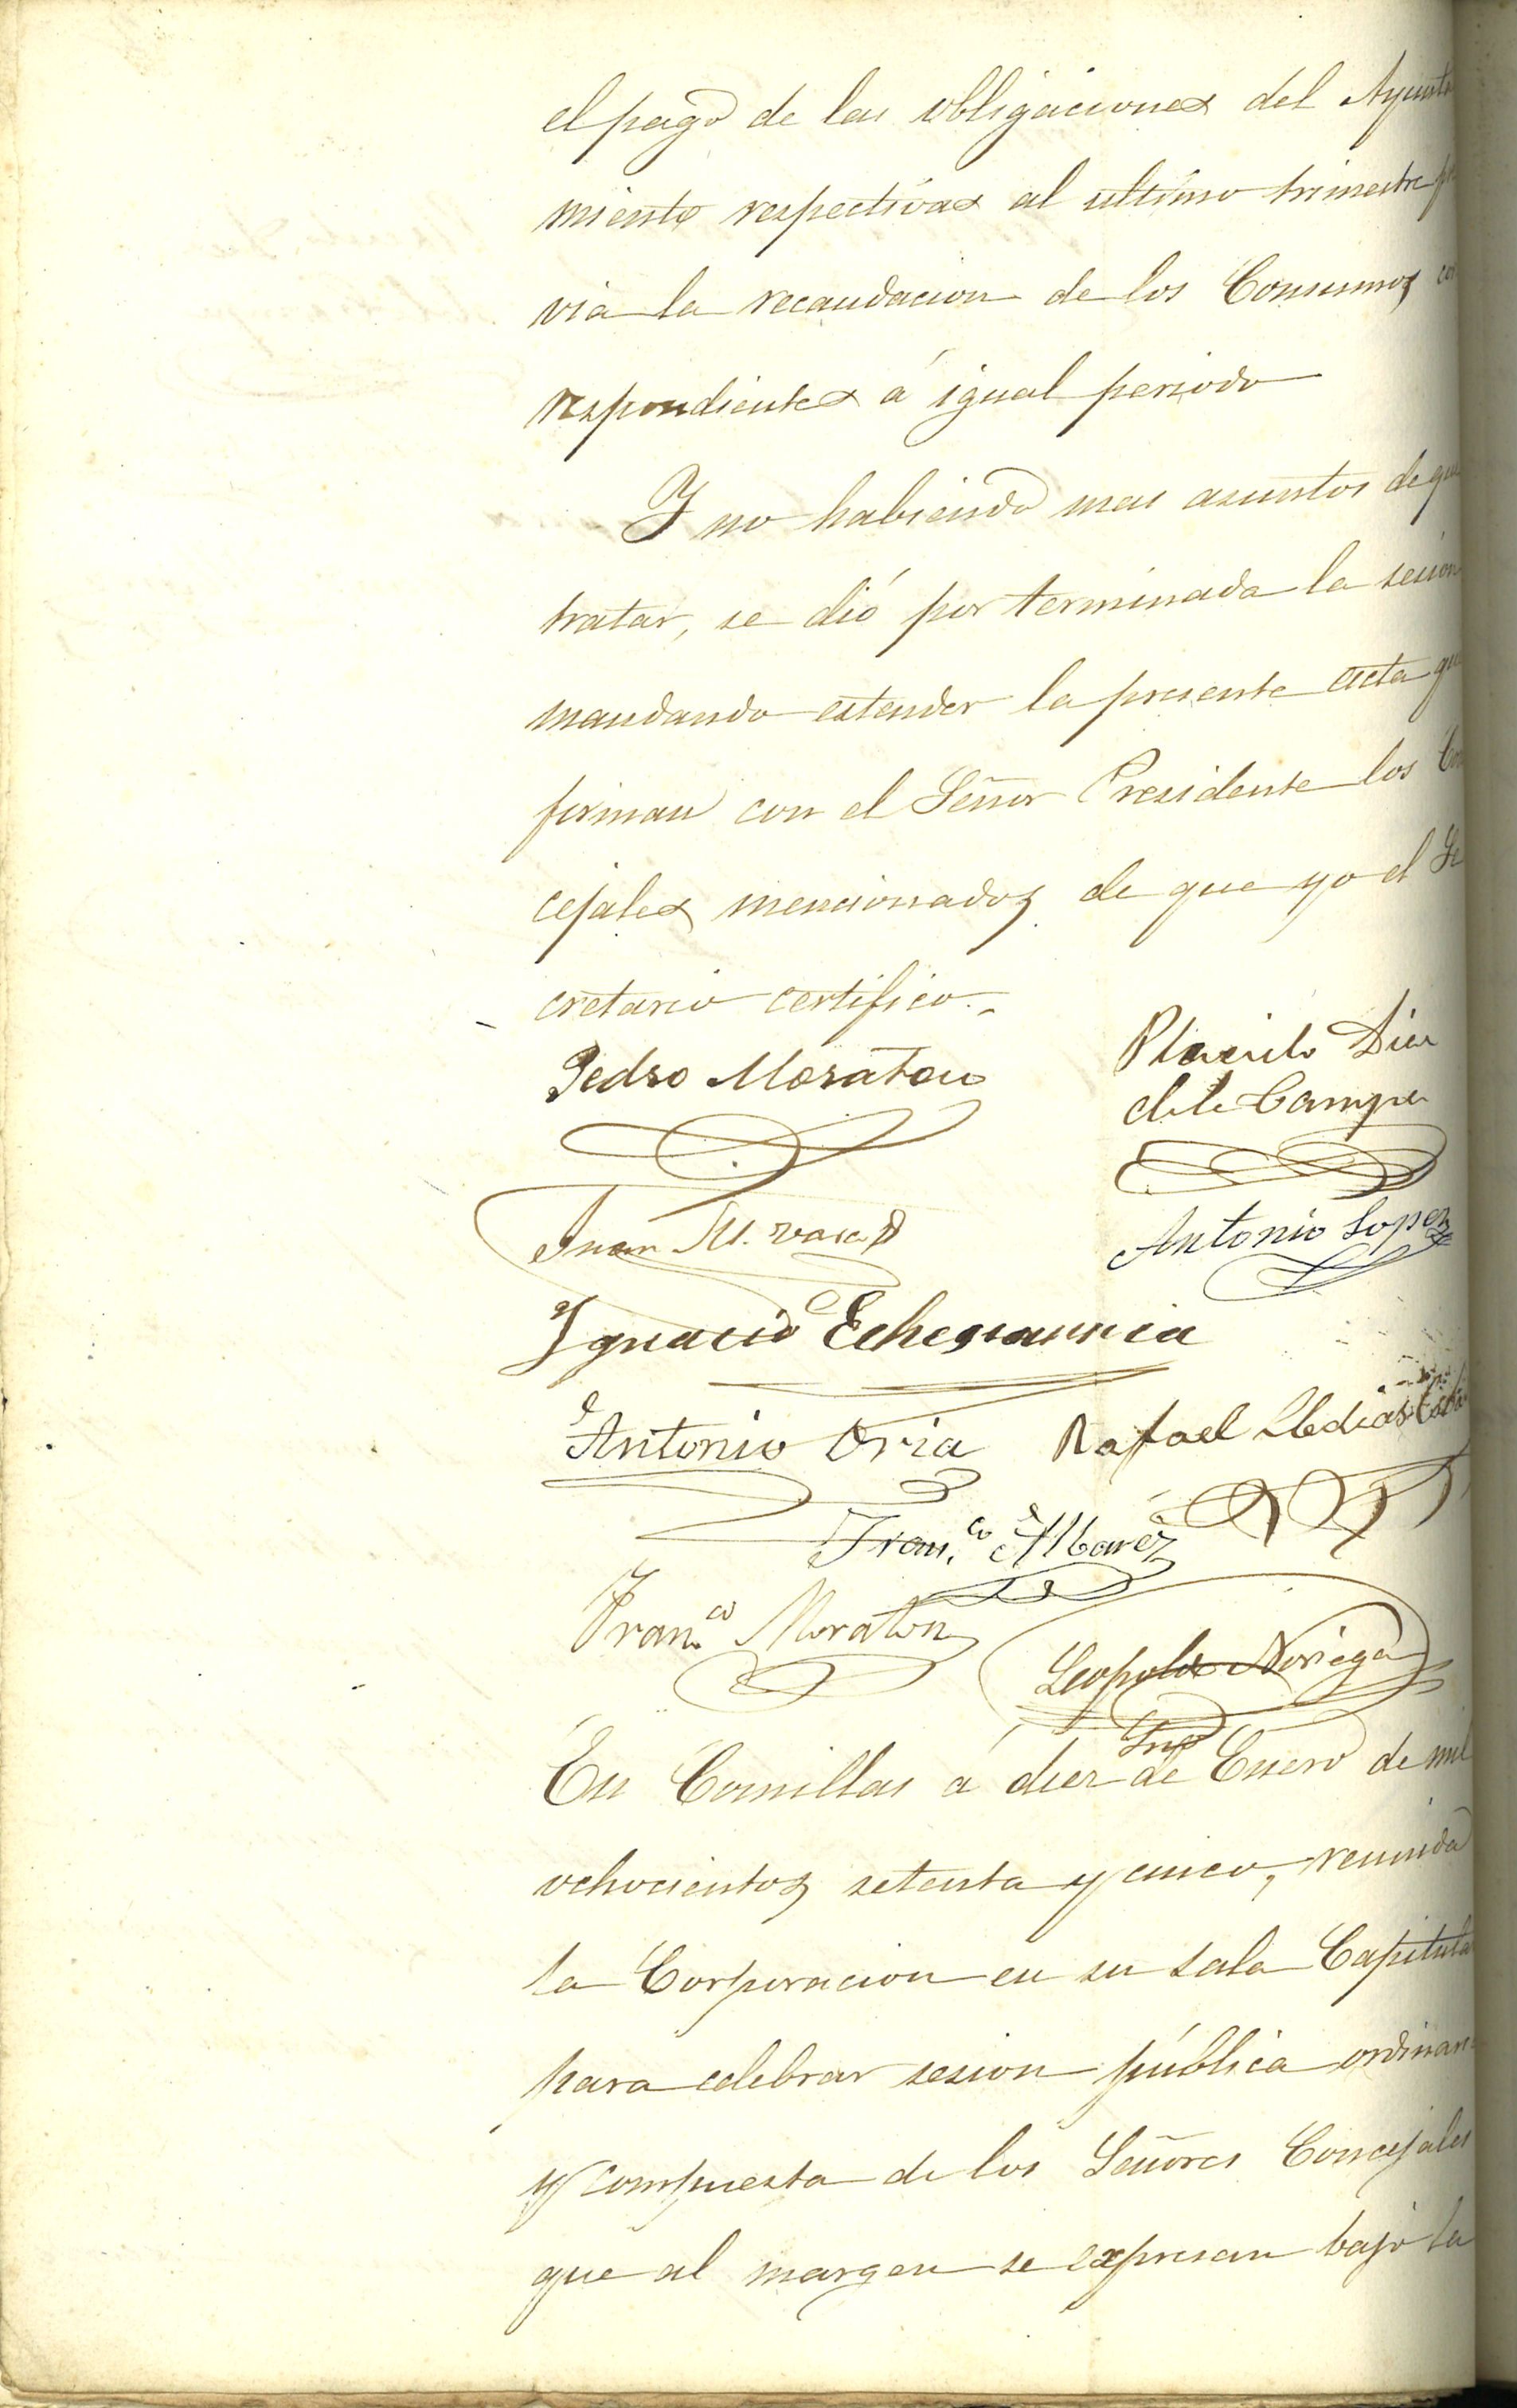 el pago de las obligaciones del Ayunta
miento respectivas al ultimo trimestre
via la recaudacion de los Consumos co
respondientes á igual periodo
Y no habiendo mas asuntos de que
tratar, se dió por terminada la sesion
mandando estender la presente acta qu
firman con el Señor Presidente los Con
cejales mencionados de que yo el Se
cretario certifico.
Pedro Moraton
Placido Diaz
de la Campa
Juan M.
Antonio Lopez
Ygnacio Echevarria
Antonio Oria
Rafael
Fran.co Albarez
Fran.co Moraton
Leopoldo Noriega
Srio
En Comillas á diez de Enero de mil
ochocientos setenta y cinco, reunida
la Corporacion en su sala Capitula
para celebrar sesion pública ordinari
y compuesta de los Señores Concejales
que al margen se expresan bajo la